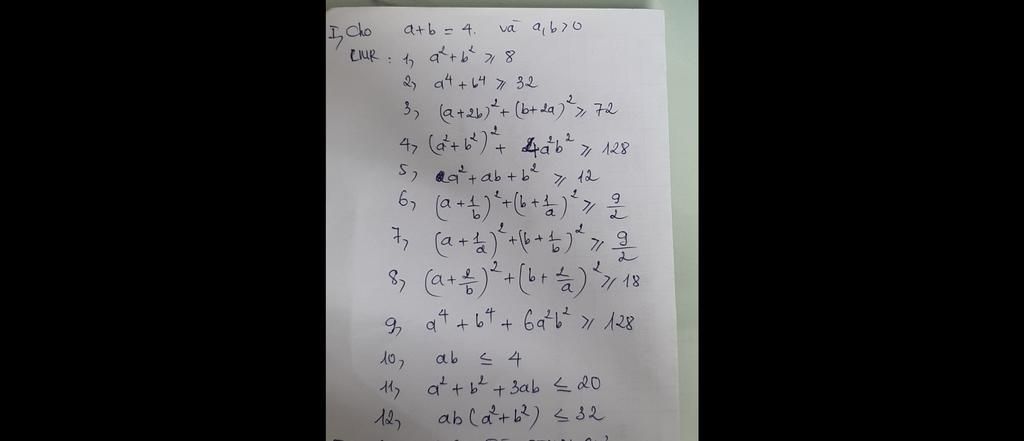 I, Cho a+b = 4. và a,b>0
CMR : 1, a²+b² ⩾ 8
2, a⁴+b⁴ ⩾ 32
3, (a+2b)²+(b+2a)² ⩾ 72
4, (a²+b²)² + 4a²b² ⩾ 128
5, a²+ab+b² ⩾ 12
6, (a+1/b)²+(b+1/a)² ⩾ 9/2
7, (a+1/a)²+(b+1/b)² ⩾ 9/2
8, (a+2/b)²+(b+2/a)² ⩾ 18
9, a⁴+b⁴+6a²b² ⩾ 128
10, ab ≤ 4
11, a²+b²+3ab ≤ 20
12, ab(a²+b²) ≤ 32